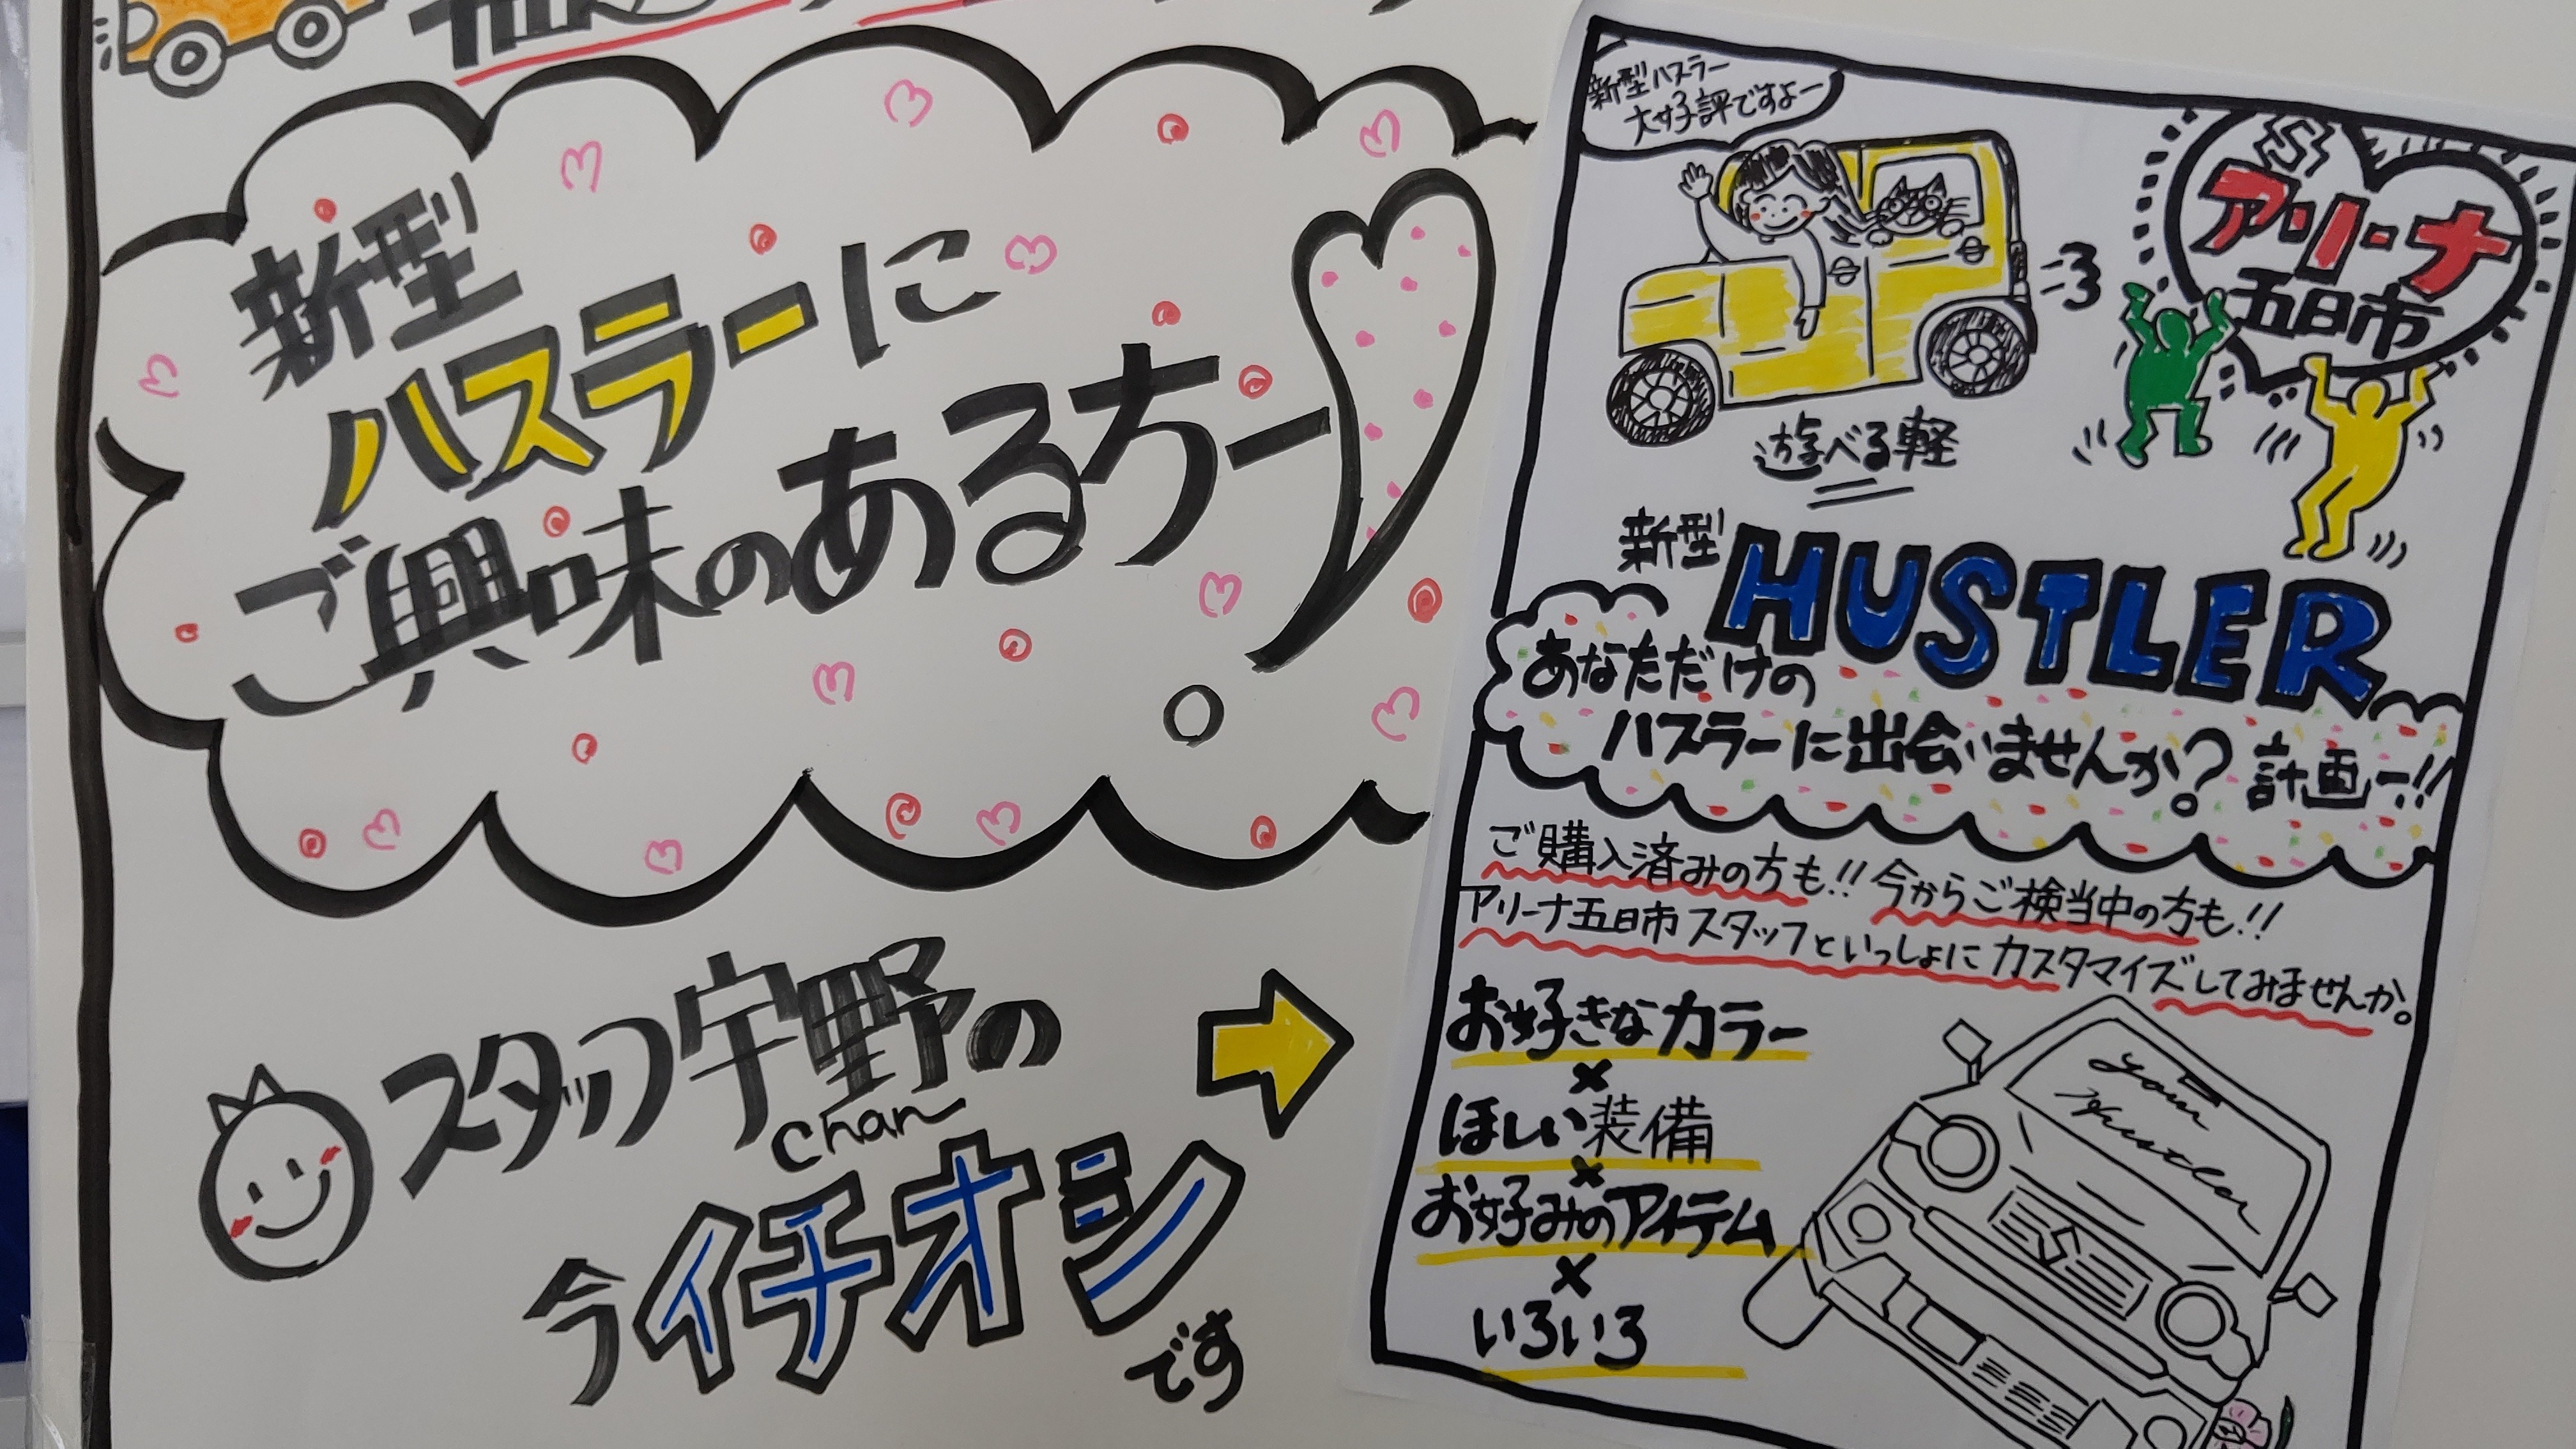 新型
ハスラーに
ご興味のある方ー
スタッフ宇野の
chan
今イチオシ
です
新型ハスラー
大好評ですよー
S
アリーナ
五日市
遊べる軽
新型 HUSTLER
あなただけの
ハスラーに出会いませんか？計画ー!!
ご購入済みの方も!! 今からご検当中の方も!!
アリーナ五日市スタッフといっしょにカスタマイズしてみませんか。
お好きなカラー
×
ほしい装備
×
お好みのアイテム
×
いろいろ
your
Hustler